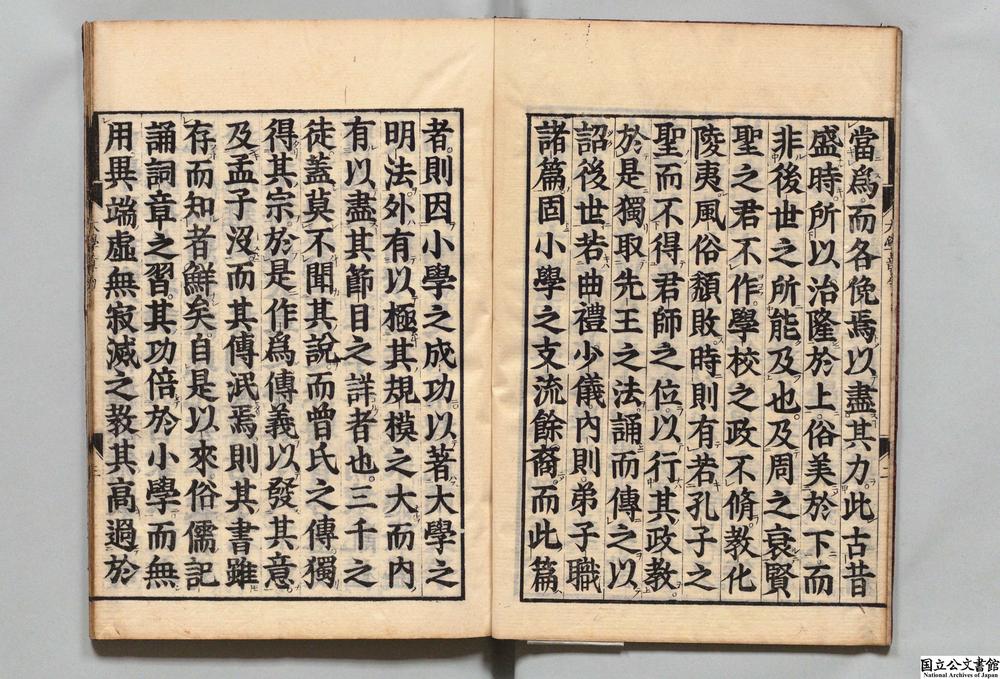 當爲而各俛焉以盡其力此古昔
盛時所以治隆於上俗美於下而
非後世之所能及也及周之衰賢
聖之君不作學校之政不脩教化
陵夷風俗頽敗時則有若孔子之
聖而不得君師之位以行其政教
於是獨取先王之法誦而傳之以
詔後世若曲禮少儀內則弟子職
諸篇固小學之支流餘裔而此篇
者則因小學之成功以著大學之
明法外有以極其規模之大而内
有以盡其節目之詳者也三千之
徒蓋莫不聞其說而曽氏之傳獨
得其宗於是作爲傳義以發其意
及孟子沒而其傳泯焉則其書雖
存而知者鮮矣自是以來俗儒記
誦詞章之習其功倍於小學而無
用異端虛無寂滅之教其高過於
国立公文書館
National Archives of Japan